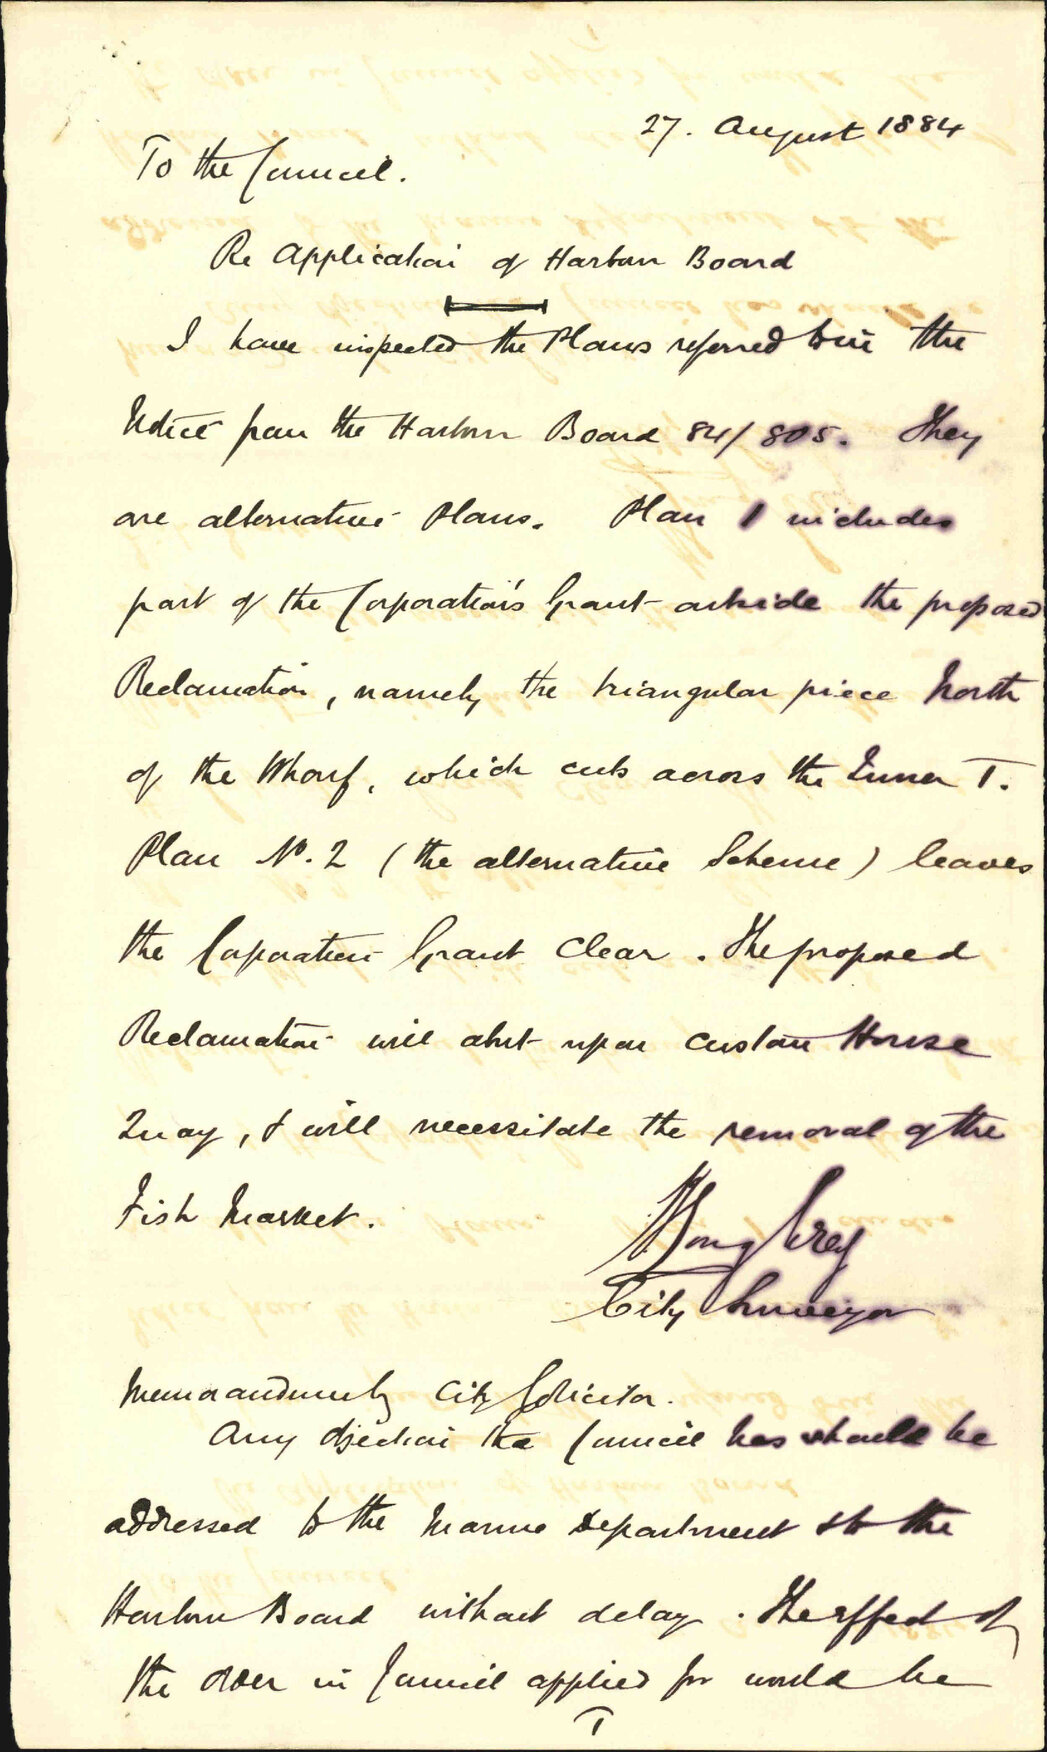 27. August 1884
To the Council.
Re Application of Harbour Board
I have inspected the Plans referred to in the
Notice from the Harbour Board 84/805. They
are alternative Plans. Plan 1 includes
part of the Corporation's Grant outside the proposed
Reclamation, namely the triangular piece North
of the Wharf, which cuts across the Inner T.
Plan No. 2 (the alternative Scheme) leaves
the Corporation Grant Clear. The proposed
Reclamation will abut upon Custom House
Quay, & will necessitate the removal of the
Fish Market.
City Surveyor
Memorandum by City Solicitor.
Any objection the Council has should be
addressed to the Marine Department & to the
Harbour Board without delay. The effect of
the Order in Council applied for would be
T